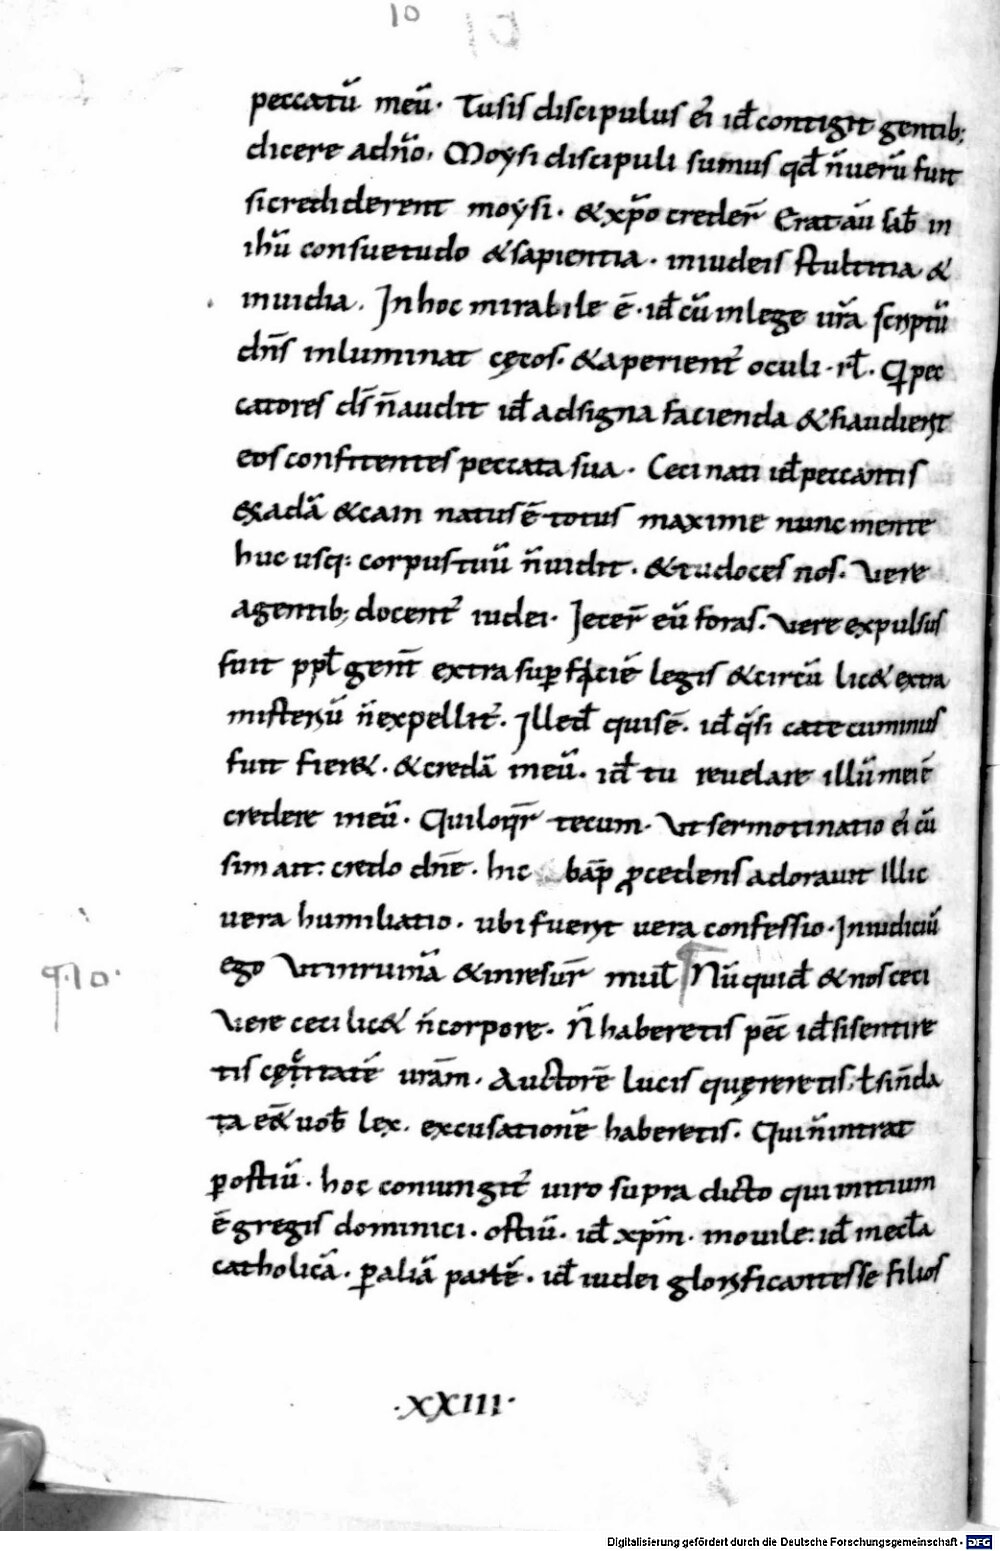 10
peccatū meū. Tu sis discipulus ei id̄ contigit gentib;
dicere ad nr̄o. Moysi discipuli sumus qd̄ n̄ uerū fuit
si crediderent moysi. & xp̄o creder̄ Erat aū sab̄ in
ihū consuetudo & sapientia. in iudeis stultitia &
inuidia. In hoc mirabile ē. id̄ cū in lege ur̄a scriptū
dn̄s inluminat cęcos. & aperient̄ oculi. rl̄. Q pec
catores ds̄ n̄ audit id̄ ad signa facienda & si audient
eos confitentes peccata sua. Ceci nati id̄ peccantis
ex adā & cain natus ē totus maxime nunc mente
huc usq: corpus tuū n̄ uidit. & tu doces nos. Vere
a gentib; docent̄ iudei. Jecer̄ eū foras. Vere expulsus
fuit ppl̄ gent̄ extra superficiē legis & circū lic& extra
misteriū n̄ expellit̄. Ille d̄ quis ē. id̄ q̄si catecuminus
fuit fier&. & credā in eū. id̄ tu reuelare illū me ē
credere in eū. Qui loqr̄ tecum. Ut sermotinatio ei cū
sim ait: credo dn̄e. hic bap̄ procedens adorauit Illic
uera humiliatio. ubi fuerit uera confessio. In iudiciū
ego Ut in ruinā & in resur̄ mul̄ Nū quid & nos ceci
¶.10.
Vere ceci lic& n̄ corpore. N̄ haberetis pec̄ id̄ si sentire
tis cęcitatē urām. Auctorē lucis quęreretis. ł si n̄ da
ta e& uob̄ lex. excusationē haberetis. Qui n̄ intrat
per ostiū. hoc coniungit̄ uiro supra dicto qui initium
ē gregis dominici. ostiū. id̄ xp̄m. in ouile: id̄ in eccl̄a
catholicā. per aliā partē. id̄ iudei glorificantes se filios
.XXIII.
Digitalisierung gefördert durch die Deutsche Forschungsgemeinschaft - DFG